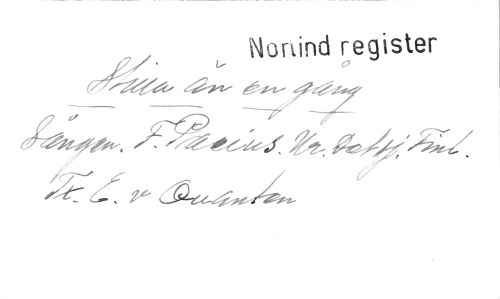 Norlind register
Stilla än en gång
Sången. F. Pacius. Ur. Det sj. Finl.
Tx. E. v Quanten